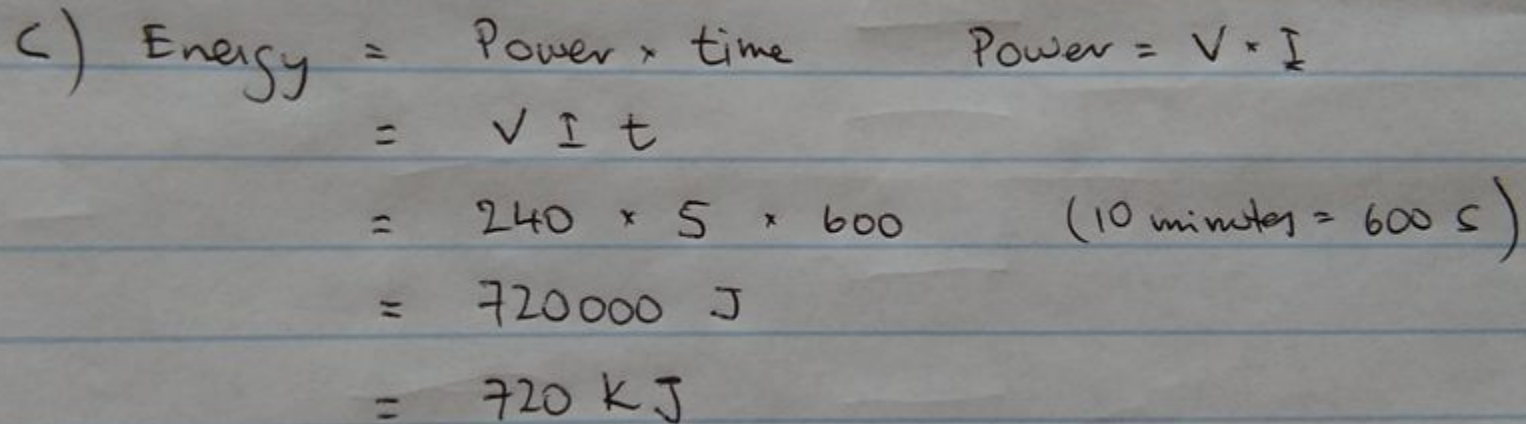 c) Energy = Power × time Power = V × I
= V I t
= 240 × 5 × 600 (10 minutes = 600 s)
= 720000 J
= 720 KJ